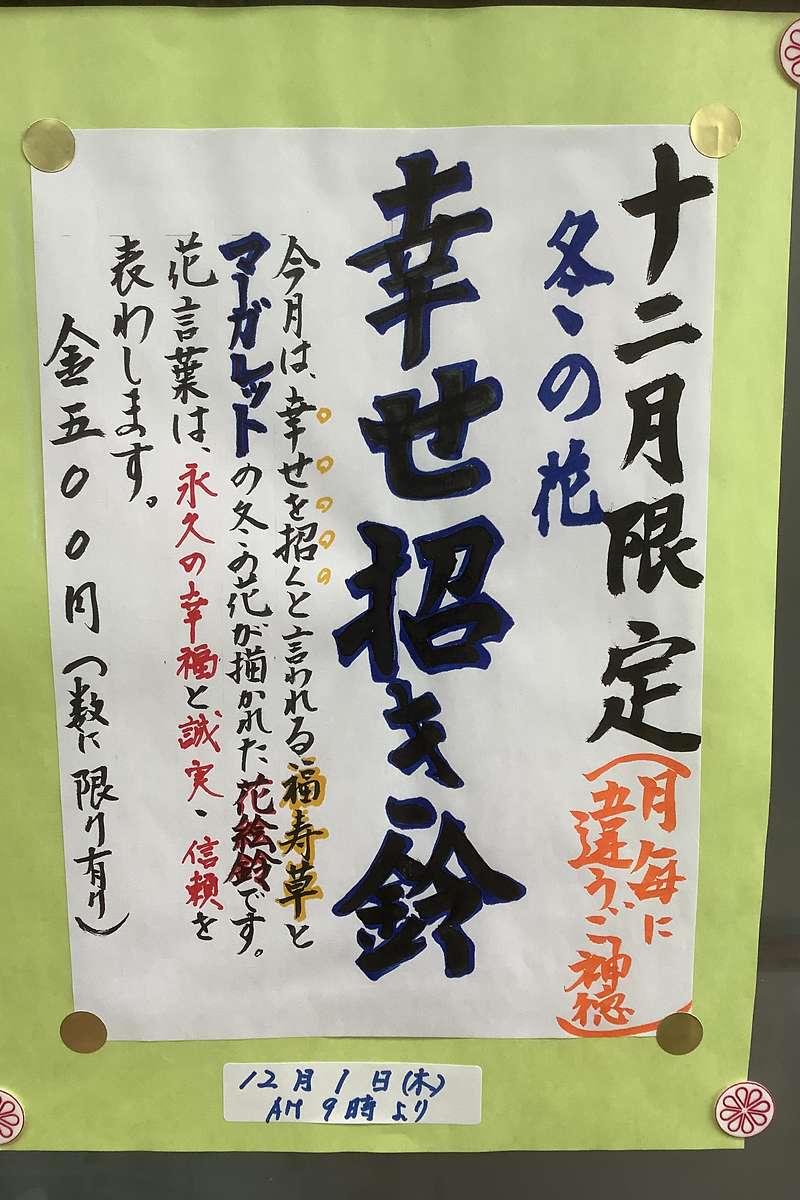 十二月限定
(月毎に
違うご神徳)
冬の花
幸せ招き鈴
今月は、幸せを招くと言われる福寿草と
マーガレットの冬の花が描かれた花絵鈴です。
花言葉は、永久の幸福と誠実・信頼を
表わします。
金五〇〇円(数に限り有り)
12月1日(木)
AM 9時より